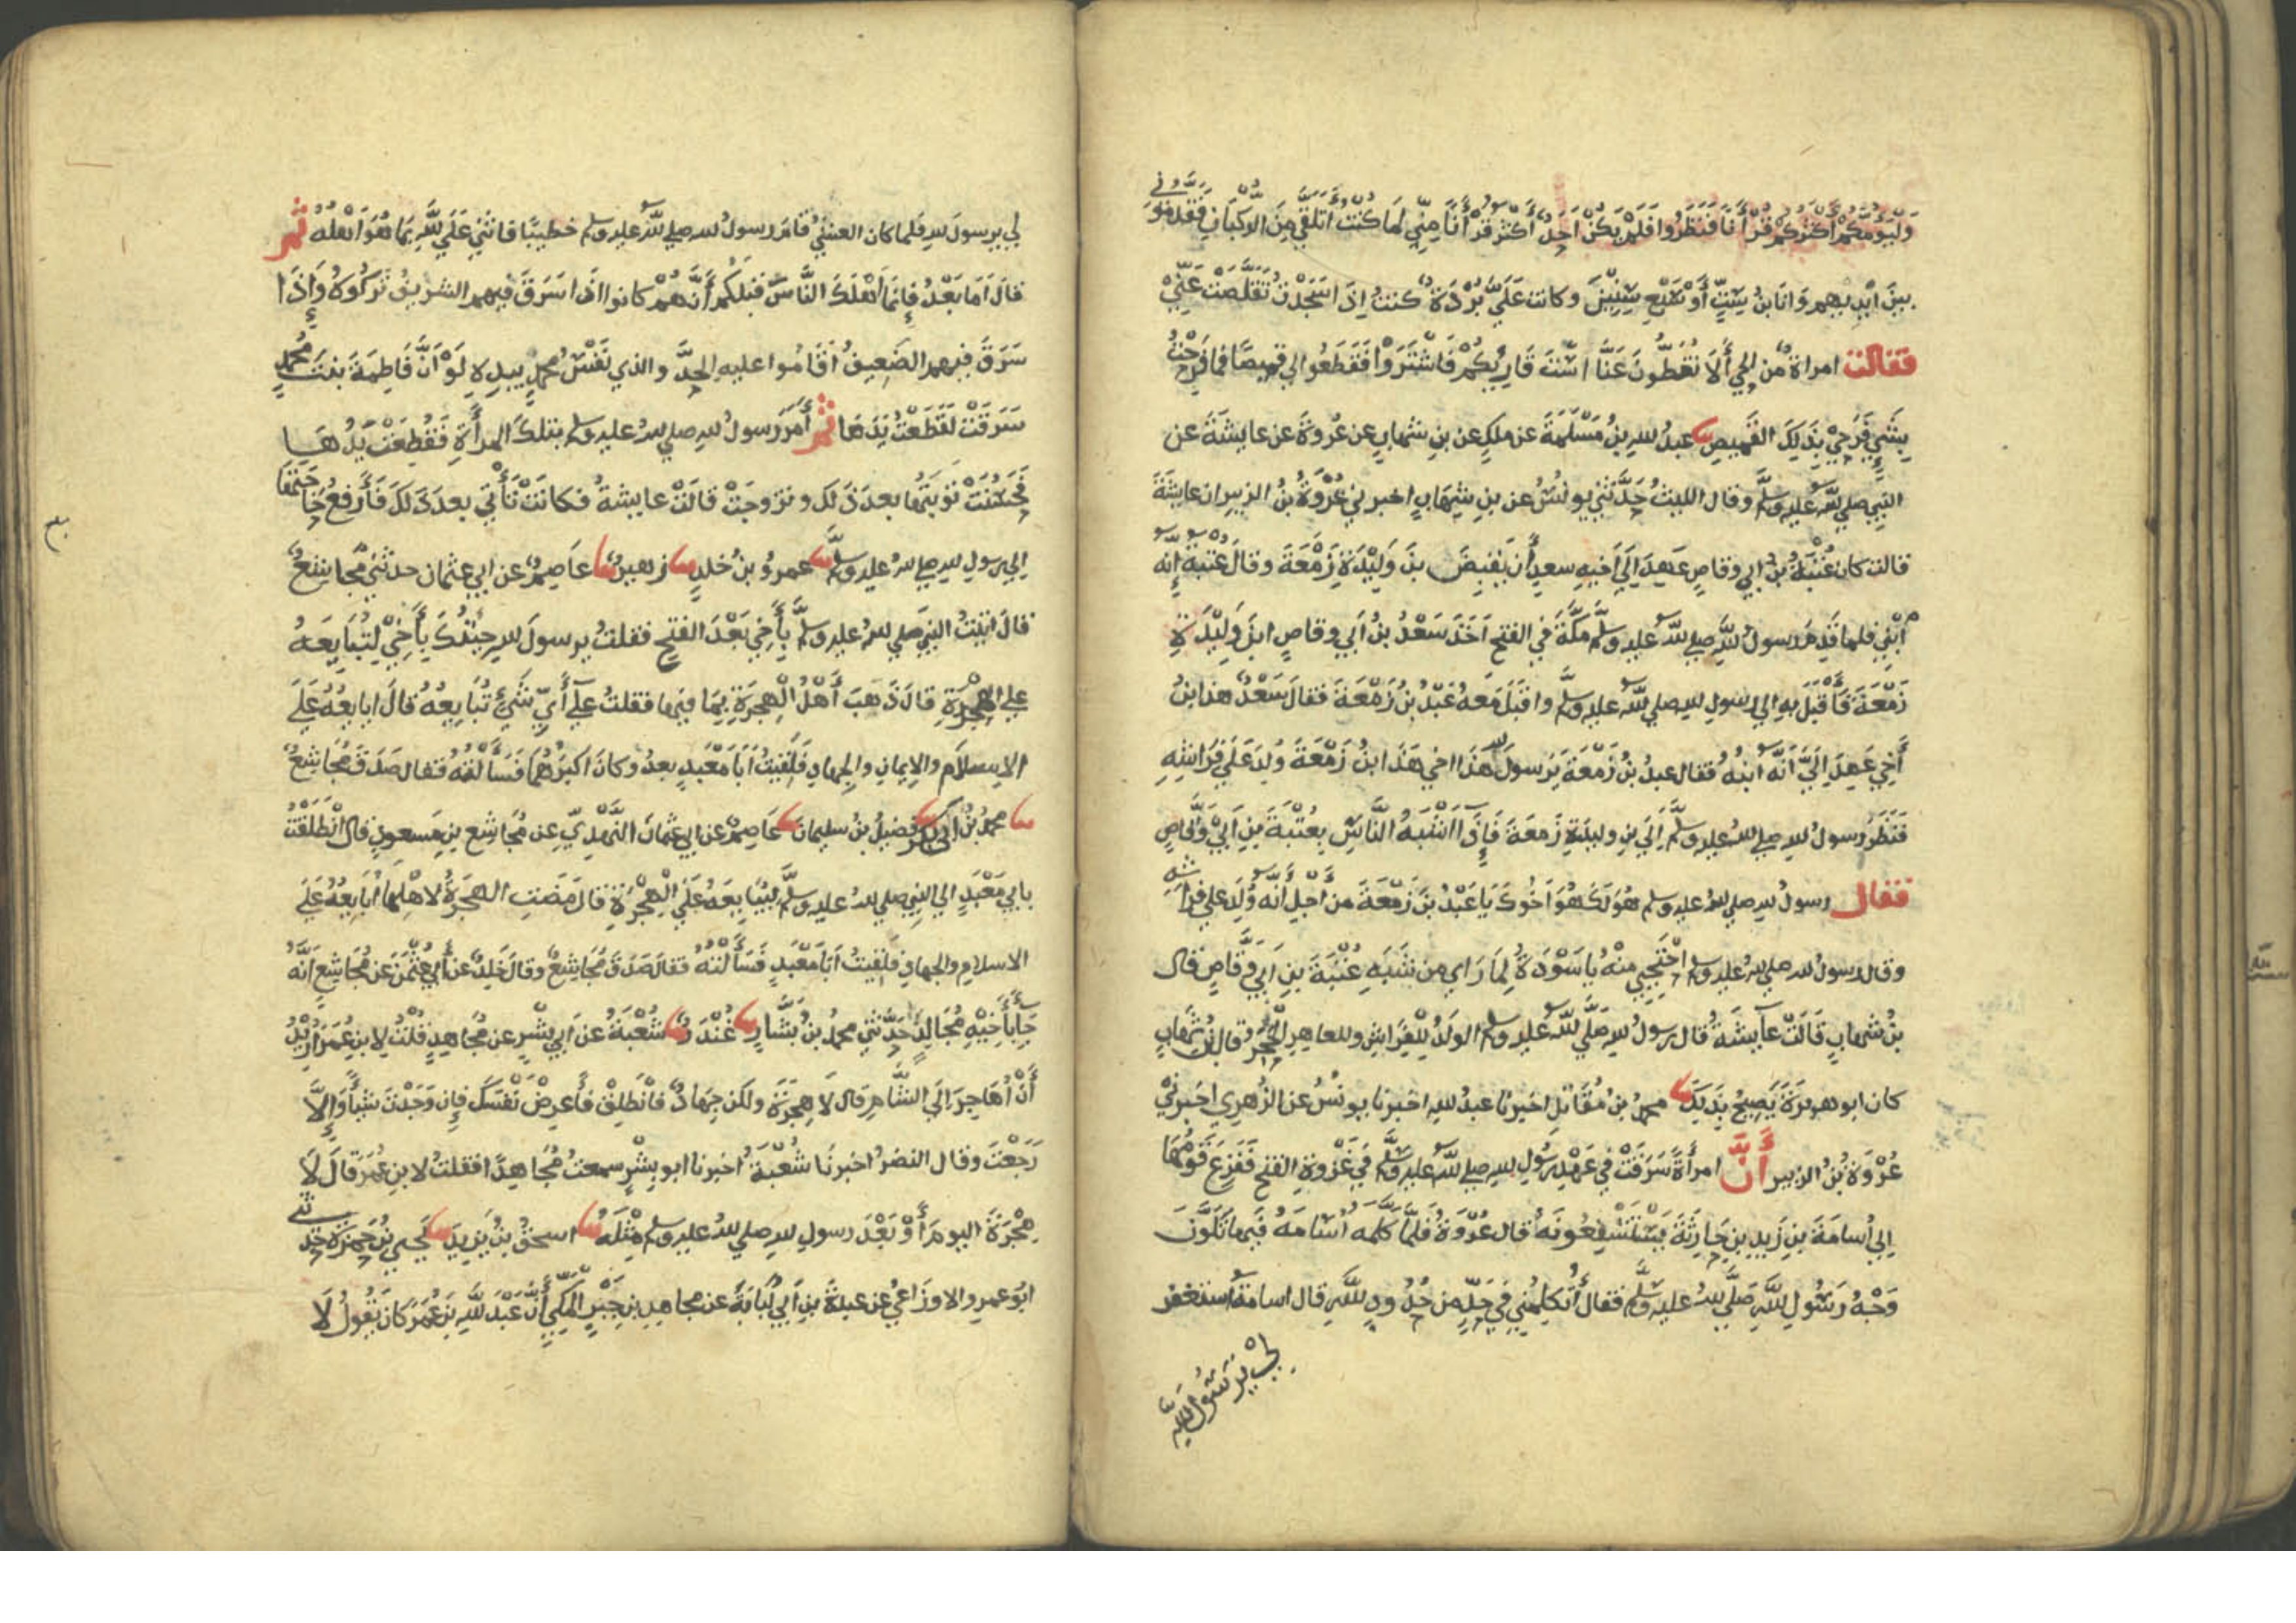 وَلْيَؤُمَّكُمْ أَكْثَرُكُمْ قُرْأَنًا فَنَظَرُوا فَلَمْ يَكُنْ اَحَدٌ أَكْثَرَ قُرْأَنًا مِنِّي لِمَا كُنْتُ أَتَلَقَّى مِنَ الرُّكْبَانِ فَقَدَّمُونِي
بينَ ايْدِيهِم وَانَا بنُ سِتٍّ أَوْ سَبْعِ سِنِينَ وكانت عَلَيَّ بُرْدَةٌ كنتُ اِذَا سَجَدْتُ تَقَلَّصَتْ عَنِّي
فقالت امراة من الحي أَلَا تُغَطُّونَ عَنَّا اسْتَ قَارِئِكُمْ فَاشْتَرَوْا فَقَطَعُوا لي قميصًا فما فَرِحْتُ
بِشَيٍ فَرَحِي بِذَلِكَ القَمِيصِ عبدُ للهِ بنُ مَسْلَمَةَ عن ملِكٍ عن بنِ شهابٍ عن عُروَةَ عن عايشَةَ عن
النبي صلي للهُ عليه وسلم وقال الليثُ حَدَّثَنِي يونسُ عن بنِ شِهَابٍ اخبرني عُرْوَةُ بنُ الزبيرِ ان عايشَةَ
قالت كان عُتْبَةُ بنُ ابي وقاصٍ عَهِدَ اِلَى اَخِيهِ سعدٍ أَن يَقْبِضَ بنَ وَلِيْدَةِ زَمْعَةَ وقالَ عُتْبَةُ اِنَّهُ
اِبْنِي فلما قَدِمَ رسولُ للهِ صلي للهُ عليه وسلم مَكَّةَ فِي الفتحِ اَخَذَ سَعْدُ بنُ أَبي وقاصٍ ابنَ وَلِيْدَةِ
زَمْعَةَ فَأَقْبَلَ بهِ الي رسولِ للهِ صلي للهُ عليه وسلم واقبَلَ مَعَهُ عَبْدُ بنُ زَمْعَةَ فقالَ سَعْدٌ هذا بنُ
أَخِي عَهِدَ اِلَيَّ أَنَّهُ ابنُهُ فقال عبدُ بنُ زَمْعَةَ يَرسولَ لله هَذَا اخي هَذَا ابنُ زَمْعَةَ وُلِدَ عَلَي فِرَاشِهِ
فَنَظَرَ رسولُ للهِ صلي للهُ عليه وسلم اِلَي بنِ وليدَةِ زَمعَةَ فَإِذَا اَشْبَهُ النَّاسِ بِعُتْبَةَ بنِ اَبِيْ وَقَّاصٍ
فقال رسولُ للهِ صلي للهُ عليه وسلم هُوَ لَكَ هُوَ اَخُوكَ يَا عَبْدُ بنَ زَمْعَةَ من أَجْلِ أَنَّهُ وُلِدَ علي فِرَاشِهِ
وقال رسولُ للهِ صلي للهُ عليه وسلم اِحْتَجِبِي مِنْهُ يا سَوْدَةُ لِمَا رَاي من شَبَهِ عُتْبَةَ بنِ اَبِي وَقَّاصٍ قال
بنُ شهابٍ قَالَتْ عآيشَةُ قال رسولُ للهِ صَلَّي للهُ عليه وسلم الولَدُ لِلْفِرَاشِ وللعاهِرِ الْحَجَرُ وقال بنُ شِهَابٍ
كان ابو هريرَةَ يَصِيحُ بِذَلِكَ محمدُ بنُ مُقَاتِلٍ اخبرنا عبدُ للهِ اخبرنا يونُسُ عن الزُهرِي اخبرني
عُرْوَةُ بنُ الزبيرِ أَنَّ امرأَةً سَرَقَتْ فِي عَهْدِ رسُولِ للهِ صلي للهُ عليه وسلم فِي غَزْوَةِ الفتحِ فَفَزِعَ قَوْمُهَا
اِلي أُسَامَةَ بنِ زَيدِ بنِ حَارِثَةَ يَسْتَشْفِعُونَهُ قال عُرْوَةُ فَلَمَّا كَلَّمَهُ اُسَامَةُ فِيهَا تَلَوَّنَ
وَجْهُ رَسُولِ للهِ صَلَّي للهُ عليه وسلم فقال أَتُكَلِّمُنِي فِي حَدٍّ مِن حُدُودِ للهِ قال اسامةُ استغفر
لِي يَرَسُولَ للهِ
لي يرسولَ للهِ فلما كان العشِيُّ قَامَ رسولُ للهِ صلي للهُ عليه وسلم خطيبًا فاثني عَلَي للهِ بِمَا هُوَ اَهْلُهُ ثُمَّ
قال اَمَا بَعْدُ فإِنَمَا اَهْلَكَ النَّاسَ قبلكُم أَنَّهُمْ كانوا اِذَا سَرَقَ فيهم الشريفُ تَرَكُوهُ وَإِذَا
سَرَقَ فِيهم الضَعِيفُ اَقَامُوا عليهِ الحدَّ والذي نَفْسُ محمدٍ بيدِهِ لَوْ اَنَّ فَاطِمَةَ بنتَ محمدٍ
سَرَقَتْ لَقَطَعْتُ يَدَهَا ثُمَّ أَمَرَ رَسولُ للهِ صلي للهُ عليه وسلم بتلكَ المرأَةِ فَقُطِعَتْ يَدُهَا
فَحَسُنَتْ تَوْبَتُهَا بعدَ ذَلكَ وتزوجَتْ قالَتْ عايشةُ فكانَتْ تَأْتي بعدَ ذَلِكَ فَأَرفعُ حَاجَتَهَا
الي رسولِ للهِ صلي للهُ عليه وسلم عمرُو بنُ خلدٍ زهيرٌ عاصِمٌ عن ابي عثمان حدثني مُجَاشِعٌ
قالَ اتَيْتُ النبي صلي للهُ عليه وسلم بِأَخِي بَعْدَ الفتحِ فقلتُ يرسولَ للهِ جِئْتُكَ بِأَخِيْ لِتُبَايِعَهُ
علي الهِجْرَةِ قالَ ذَهَبَ أَهْلُ الْهِجرَةِ بِمَا فيهَا فقلتُ عَلَي أَيِّ شَيْئٍ تُبَايِعُهُ قالَ ابايعُهُ عَلَي
الإسلام والإيمانِ والجهادِ فَلَقِيتُ اَبَا مَعْبَدٍ بعدُ وكَانَ اكبَرُهُمَا فَسَأَلْتُهُ فقال صَدَقَ مُجَاشِعٌ
محمدُ بنُ ابي بكر فضيلُ بنُ سليمانَ عَاصِمٌ عن ابي عثمانَ النَّهْدِيِّ عن مُجَاشِعِ بنِ مَسعودٍ قال انْطَلَقْتُ
بابي مَعْبَدٍ الي النبي صلي للهُ عليه وسلم لِيُبَايِعَهُ عَلَي الْهِجْرَةِ قال مَضَتِ الهجرَةُ لاهْلِهَا اُبَايِعُهُ عَلَي
الاسلامِ والجهادِ فَلَقِيتُ اَبَا مَعْبَدٍ فَسَأَلْتُهُ فقال صَدَقَ مُجَاشِعٌ وقالَ خَلِدٌ عن أَبي عُثْمَنَ عَن مُجَاشِعٍ اَنَّهُ
جَاءَ بِأَخِيْهِ مُجَالِدٍ حَدَّثَنِي محمدُ بنُ بَشَّارٍ غُنْدَرٌ شُعْبَةُ عن اَبِي بِشْرٍ عن مُجَاهِدٍ قُلْتُ لابنِ عُمَرَ اُرِيْدُ
أَنْ أُهَاجِرَ إِلَي الشَّامِ قال لَا هِجْرَةَ ولكن جِهَادٌ فانْطَلِقْ فَأعرِضْ نَفْسَكَ فإِن وَجَدْتَ شيأً وَإِلَّا
رَجَعْتَ وقال النضرُ اخبرنا شُعْبَةُ اخبرنا ابو بِشْرٍ سمعتُ مُجَاهِدًا قلتُ لابنِ عُمَرَ قال لَا
هِجْرَةَ اليومَ أَوْ بَعْدَ رسولِ للهِ صلي للهُ عليه وسلم مِثْلَهُ اسحقُ بنُ يَزِيدَ يَحيي بنُ حَمزَةَ حَدَّثَنِي
ابُو عمرٍو الاوزَاعِيُّ عن عبدَةَ بنِ أَبي لُبَابَةَ عن مجاهدِ بنِ جَبْرٍ المَكِّيِّ أَنَّ عَبْدَ للهِ بنَ عُمَرَ كان يَقُولُ لَا